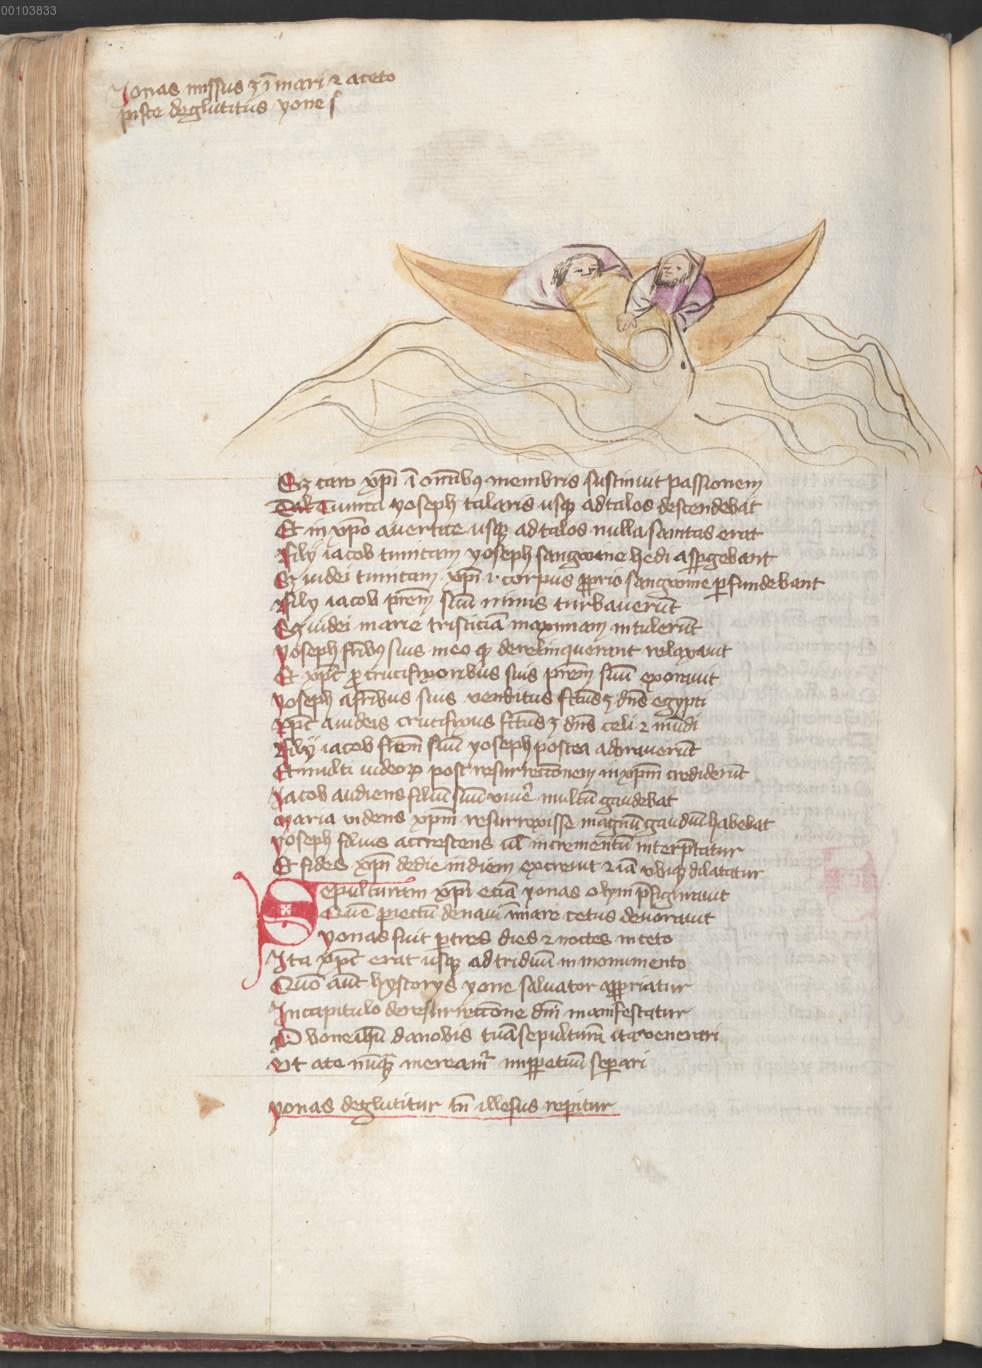 00103833
Jonas missus ʒ ĩ mari ⁊ a ceto
pisce deglutitus yone s
Sʒ caro xp̃i ĩ om̃ibꝰ membris sustinuit passionem
Tunica yoseph talaris usqꝫ ad talos descendebat
Et in xp̃o a vertice usqꝫ ad talos nulla sanitas erat
Filij iacob tunicam yoseph sangwine hedi aspgebant
Sʒ iudei tunicam xp̃i .i. corpus ꝓprio sangwine ꝑfundebant
Filij iacob prẽm suũ nimis turbaverũt
Sʒ iudei marie tristiciã maximam intulerũt
yoseph fribꝰ suis in eo qꝫ derelinquerant relaxavit
Et xp̃c ꝑ crucifixoribus suis prẽm suũ exoravit
yoseph a fribus suis venditus fctũs ʒ dñs egypti
xp̃c a iudeis crucifixus fctũs ʒ dñs celi ⁊ mũdi
Filij iacob frẽm suũ yoseph postea adoraverũt
Et multi iudeoꝝ post resurrectionem in xpm̃ crediderũt
Jacob audiens filiũ suũ viver̃ multũ gaudebat
Maria videns xpm̃ resurrexisse magnũ gaudiũ habebat
yoseph filius accrescens ul̃ incrementũ interp̃tatur
Et fides xp̃i de die in diem excrevit ⁊ iã ubiqꝫ dilatatur
Sepulturam xp̃i eciã yonas olym p̃figuravit
Quẽ ꝓiectũ de navi ĩ mare cetus devoravit
yonas fuit ꝑ tres dies ⁊ noctes in ceto
Ita xp̃c erat usqꝫ ad triduũ in monumento
Quõ aũt hystorys yone salvator appriatur
In capitulo de resurrectione dñi manifestatur
O bone ihũ da nobis tuã sepulturã ita venerari
Ut a te nũqꝫ mereamr̃ inꝑpetuũ separi
yonas deglutitur tñ illesus repitur